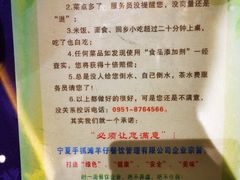 2.菜点多了、服务员没提醒您,没动量还是
“退”;
3.米饭、面食、回乡小吃超过二十分钟上桌,
吃了也白吃;
4.任何菜品如发现使用“食品添加剂”一经
查实,您将获得十倍赔偿;
5.总是没人给您倒水、自己倒水,茶水费服
务员请您了!
6.以上都做好的很好,可是您还是不满意,
没关系投诉电话:0951-8764566.
其实我们放一个承诺:
“必须让您满意”!
宁夏手抓滩羊仔餐饮管理有限公司企业宗旨
打造“绿色”、“健康”、“安全”、“美味”